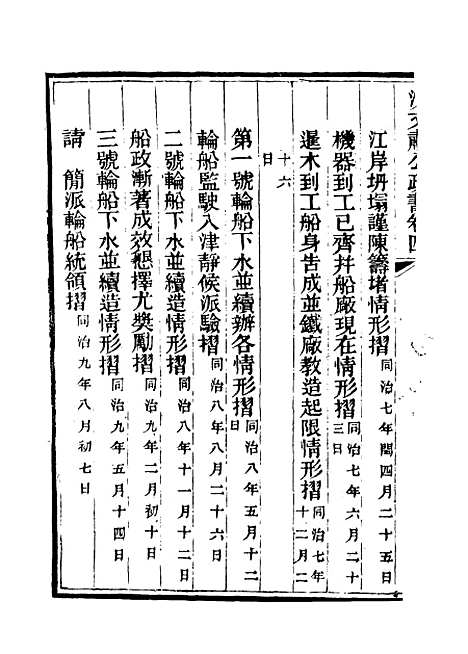 沈文肅公政書卷四
江岸坍塌謹陳籌堵情形摺同治七年閏四月二十五日
機器到工已齊幷船廠現在情形摺同治七年六月二十三日
暹木到工船身告成並鐵廠教造起限情形摺同治七年十二月二十六日
第一號輪船下水並續辦各情形摺同治八年五月十二日
輪船監駛入津靜候派驗摺同治八年八月二十六日
二號輪船下水並續造情形摺同治八年十一月十二日
船政漸著成效懇擇尤獎勵摺同治九年二月初十日
三號輪船下水並續造情形摺同治九年五月十四日
請 簡派輪船統領摺同治九年八月初七日